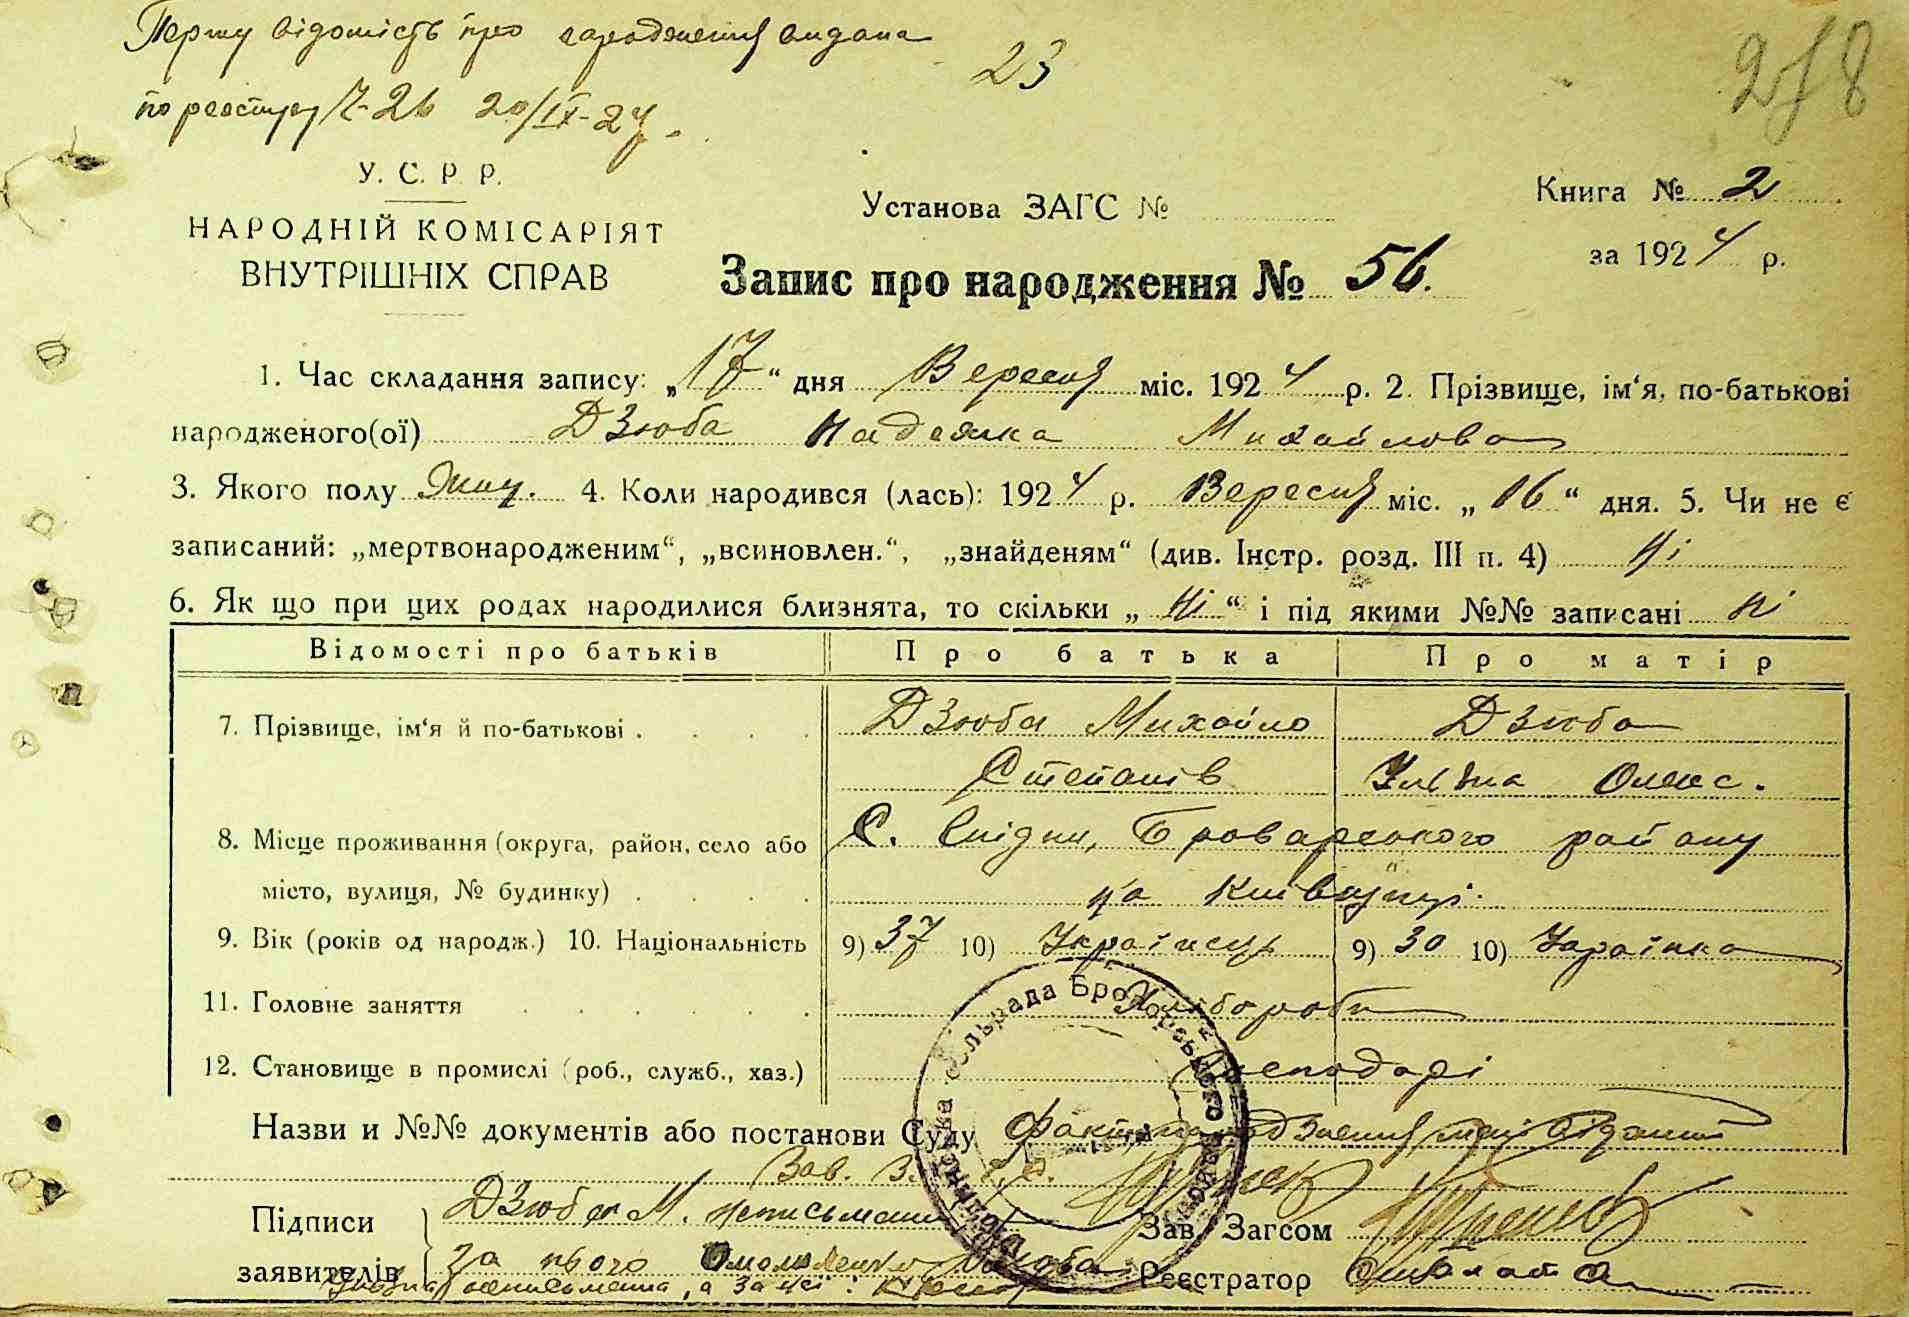 Першу відомість про народження видана
по реєстру Ч-26 20/IX-24.
23
218
У. С. Р. Р.
НАРОДНІЙ КОМІСАРІЯТ
ВНУТРІШНІХ СПРАВ
Установа ЗАГС №
Запис про народження № 56.
Книга № 2
за 1924 р.
1. Час складання запису: „17“ дня Вересня міс. 1924 р. 2. Прізвище, ім‘я, по-батькові
народженого(ої) Дзюба Надежка Михайлова
3. Якого полу Жін. 4. Коли народився (лась): 1924 р. Вересня міс. „16“ дня. 5. Чи не є
записаний: „мертвонародженим“, „всиновлен.“, „знайденям“ (див. Інстр. розд. III п. 4) Ні
6. Як що при цих родах народилися близнята, то скільки „Ні“ і під якими №№ записані Ні
Відомості про батьків Про батька Про матір
7. Прізвище, ім‘я й по-батькові . . . . Дзюба Михайло Дзюба
Степанів Уляна Олекс.
8. Місце проживання (округа, район, село або С. Броварського району
місто, вулиця, № будинку) . . . . на Київщині.
9. Вік (років од народж.) 10. Національність 9) 37 10) Українець 9) 30 10) Українка
11. Головне заняття . . . . . . Хлібороби
12. Становище в промислі (роб., служб., хаз.) Господарі
Назви и №№ документів або постанови Суду Факт народження
Зав. З.
Підписи Дзюба М. неписьмений Зав. Загсом
заявителів за нього Реєстратор
неписьменна, а за неї:
сільрада Броварського